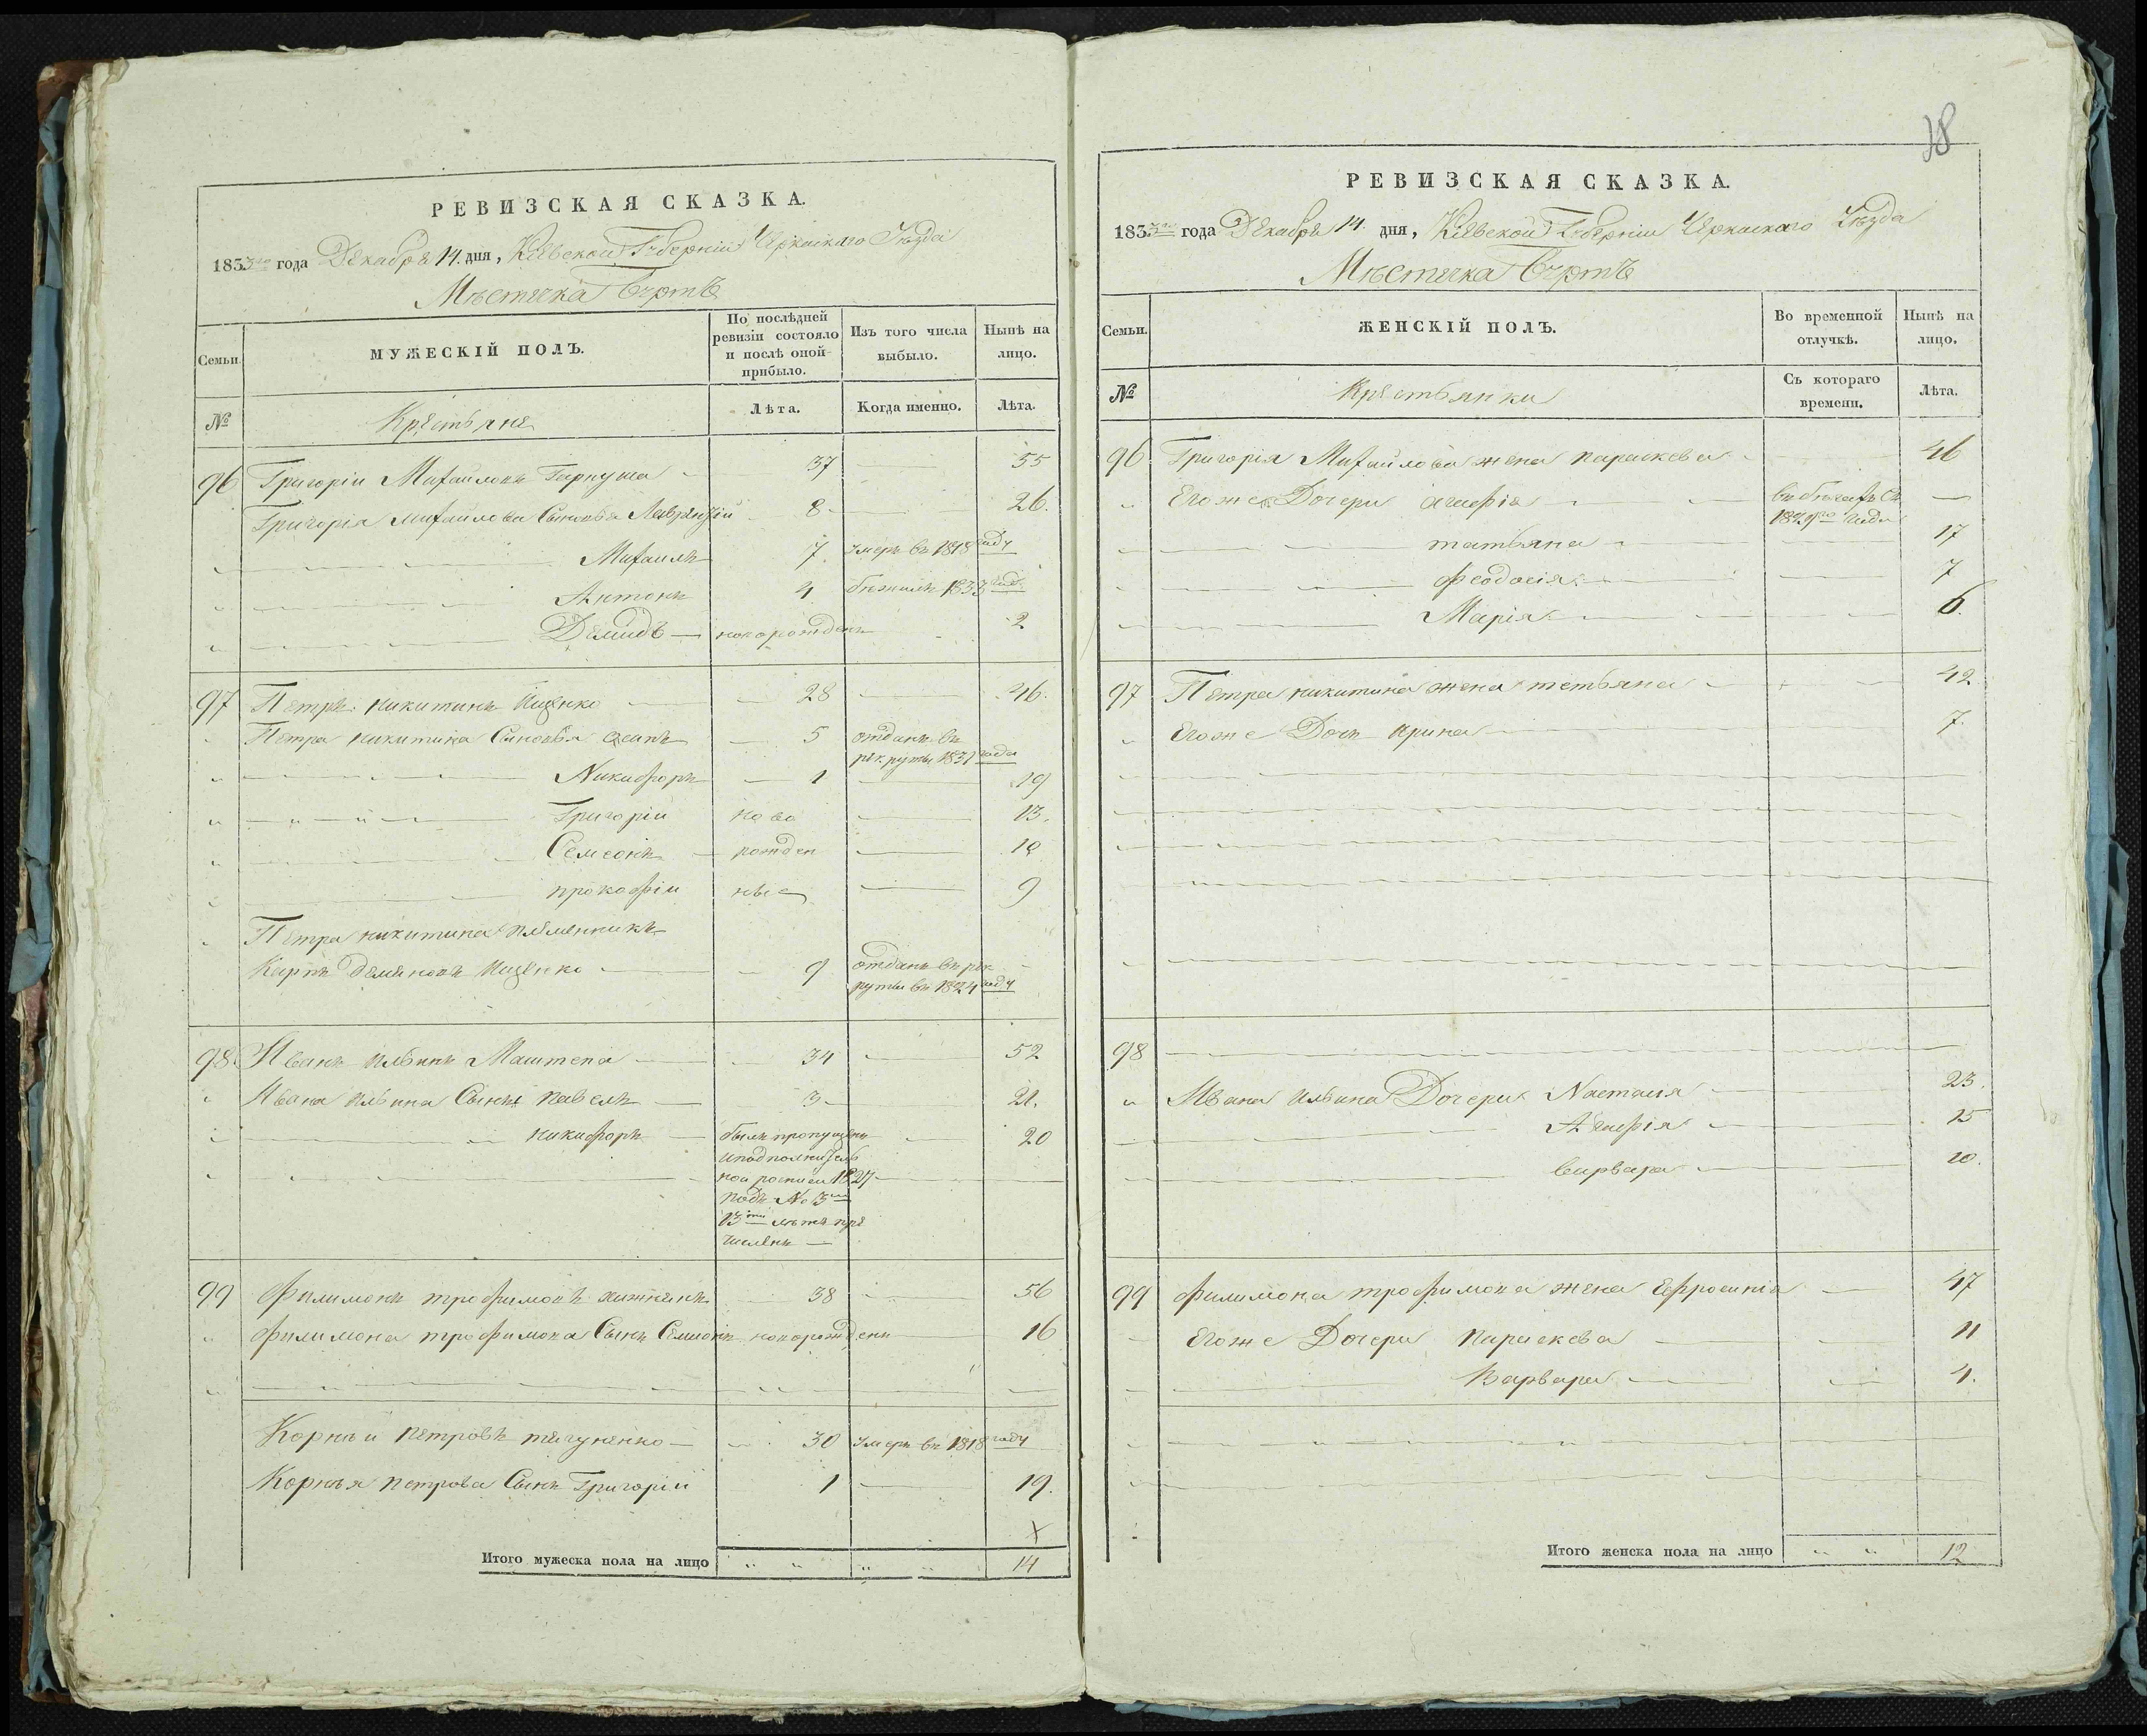 РЕВИЗСКАЯ СКАЗКА.
1833го года Декабря 14. дня, Кіевской Губерніи Черкаскаго Уѣзда
Мѣстечка Буртъ
Семьи.
МУЖЕСКІЙ ПОЛЪ.
По послѣдней ревизіи состояло и послѣ оной прибыло.
Изъ того числа выбыло.
Нынѣ на лицо.
№
Крестьяне
Лѣта.
Когда именно.
Лѣта.
96 Григоріи Михайловъ Гаркуша 37 — 55
Григорія Михайлова Сыновья Лаврентій 8 — 26.
Михаилъ 7 умеръ въ 1818 году
Антонъ 4 бѣжалъ 1833 года
Демидъ — новорожденъ 2
97 Петръ никитинъ Ищенко 28 — 46.
Петра никитина Сыновья осипъ 5 отданъ въ
рекруты 1831 года
Никифоръ 1 — 19
Григоріи ново — 13.
Семеонъ рожден — 10
прокофіи ные — 9
Петра никитина племенникъ
Карпъ Демяновъ Ищенко 9 отданъ въ рек
руты въ 1824 году
98 Иванъ ильинъ Маштепа 34 — 52
Ивана ильина Сыны павелъ 3 — 21.
никифоръ былъ пропущенъ 20
1827
подъ № 3м
13ти лѣтъ при
численъ —
99 Филимонъ трофимовъ 38 — 56
филимона трофимова Сынъ Семионъ новорожденъ 16
Корнѣи петровъ 30 умеръ въ 1818 году
Корнѣя петрова Сынъ Григоріи 1 — 19.
Х
Итого мужеска пола на лицо 14
18
РЕВИЗСКАЯ СКАЗКА.
1833го года Декабря 14. дня, Кіевской Губерніи Черкаскаго Уѣзда
Мѣстечка Буртъ
Семьи.
ЖЕНСКІЙ ПОЛЪ.
Во временной отлучкѣ.
Нынѣ на лицо.
№
Крестьянки
Съ котораго времени.
Лѣта.
96 Григорія Михайлова жена параскева 46
Егоже Дочери агафія въ бѣгахъ съ —
1829го года
татьяна 17
феодосія 7
Марія 6.
97 Петра никитина жена тетьяна 42
Егоже Дочь ирина 7.
98
Ивана ильина Дочери Настасія 23.
Агафія 15
варвара 10.
99 филимона трофимова жена Ефросинія 47
Егоже Дочери параскева 11
Варвара 4.
Итого женска пола на лицо 12